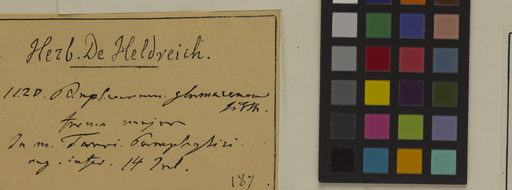 Herb. De Heldreich.
1120. Bupleurum glumaceum
Sibth.
forma major
In m. Tauri. Pamphyliæ
reg. infer. 14 Jul.
187 .